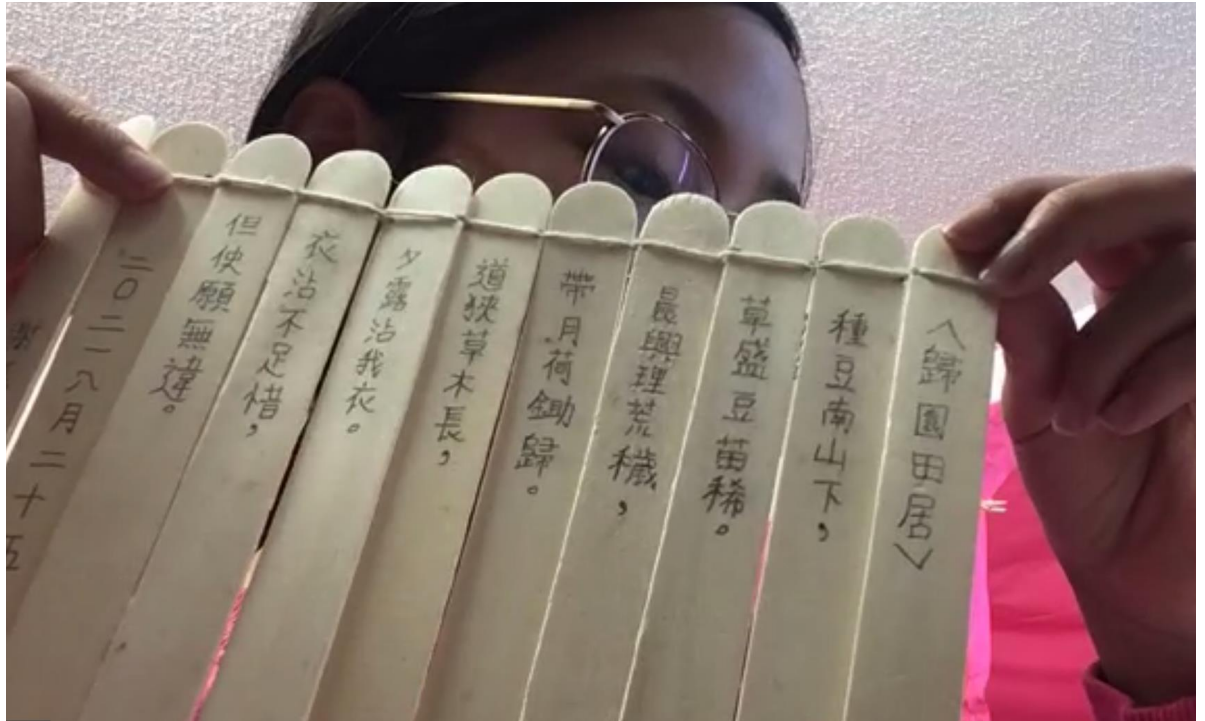 〈歸園田居〉
種豆南山下，
草盛豆苗稀。
晨興理荒穢，
帶月荷鋤歸。
道狹草木長，
夕露沾我衣。
衣沾不足惜，
但使願無違。
二〇二一八月二十五
謝